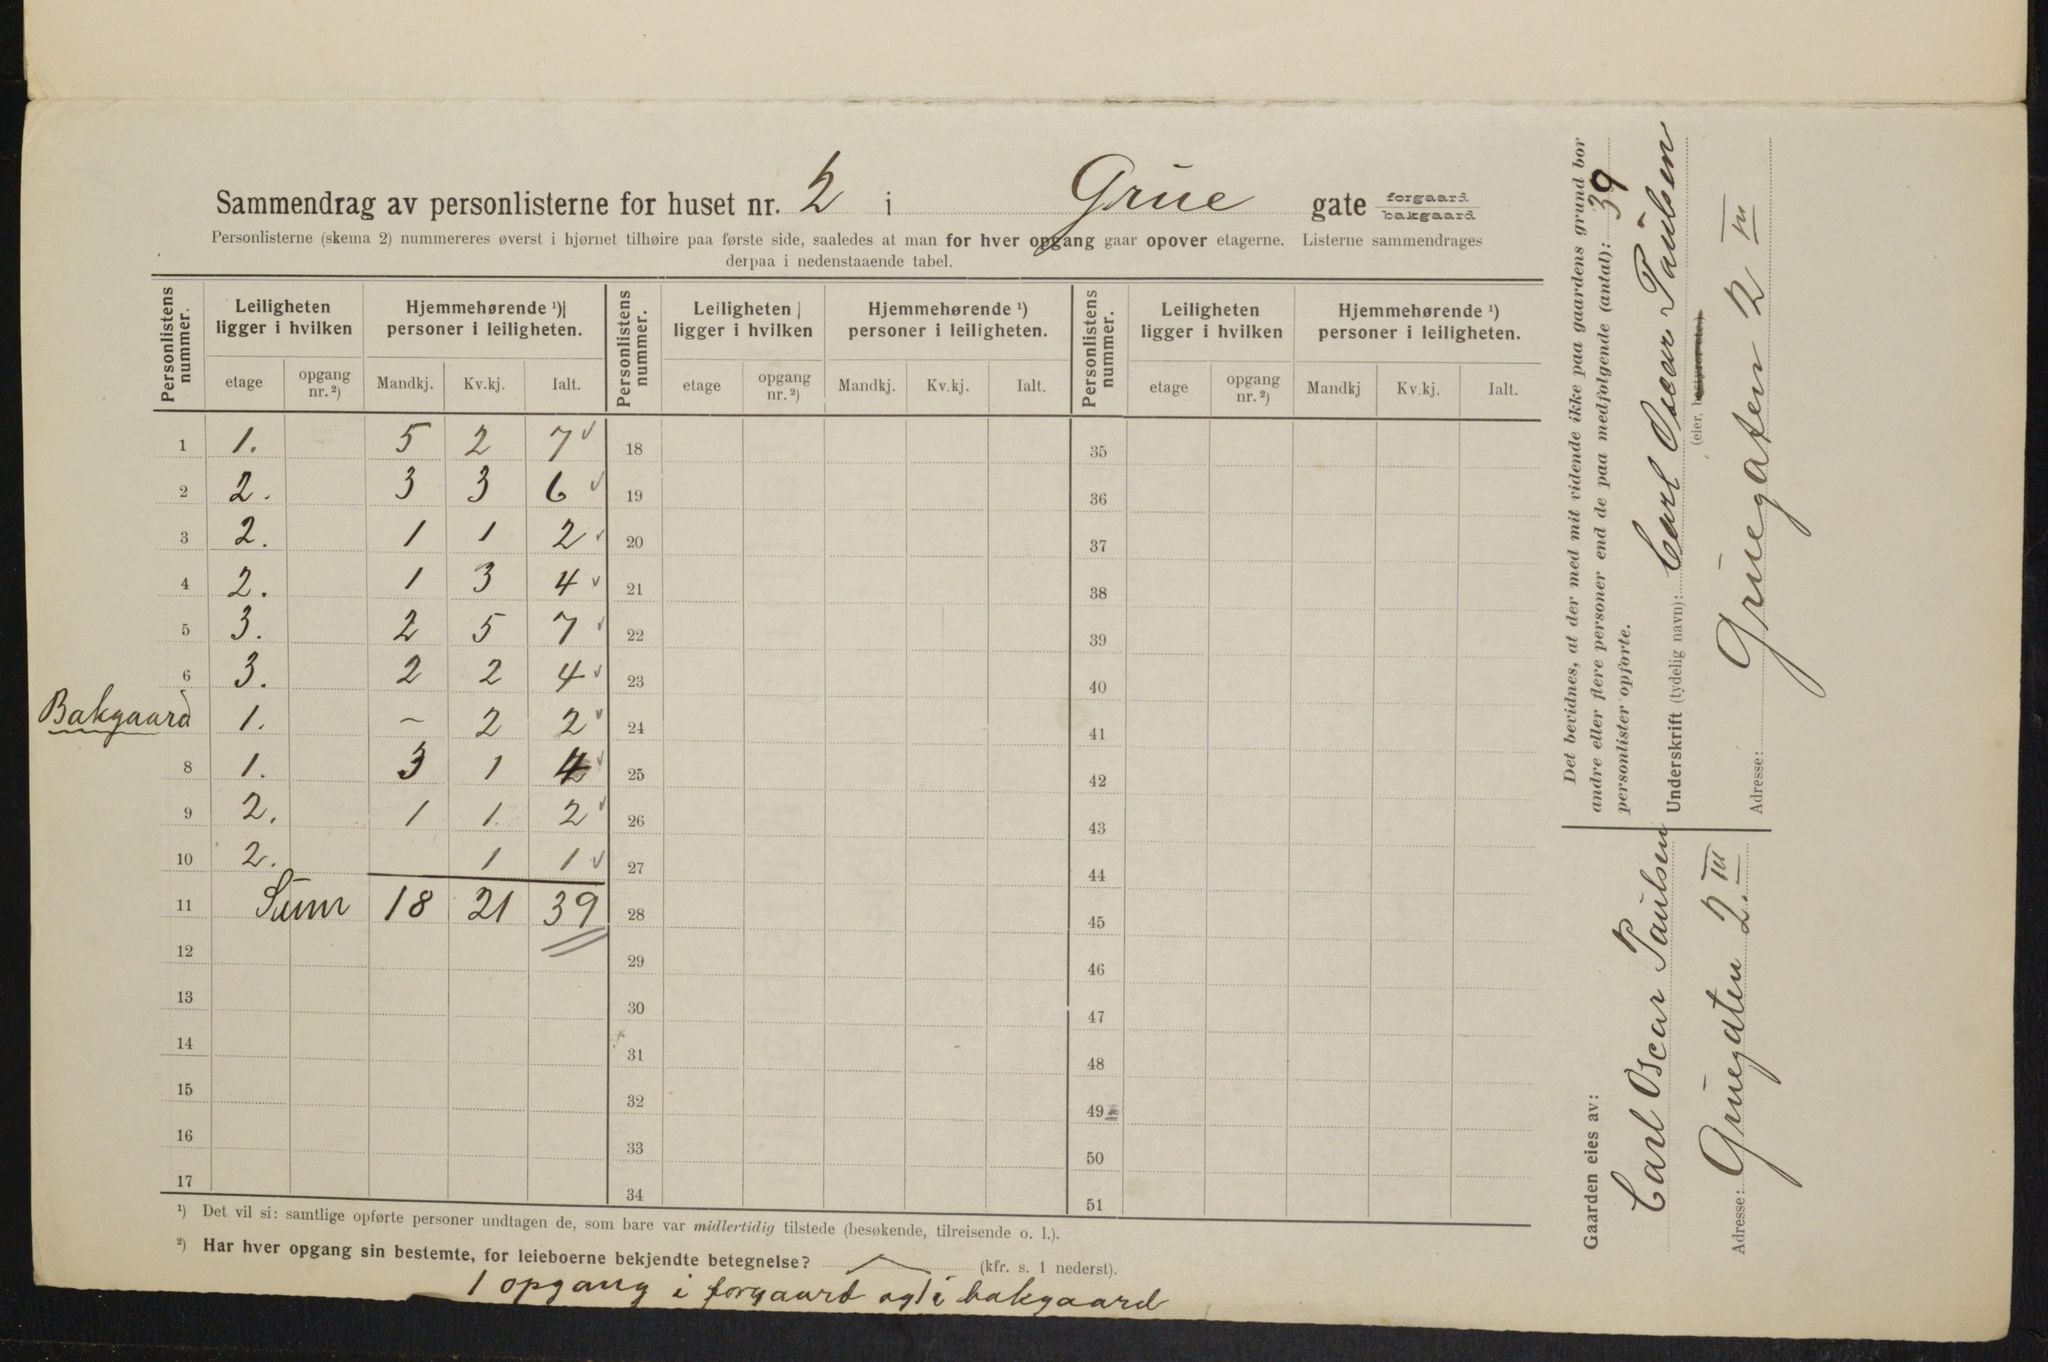 Sammendrag av personlisterne for huset nr. 2 i Grue gate forgaard bakgaard
Personlisterne (skema 2) nummereres øverst i hjørnet tilhøire paa første side, saaledes at man for hver opgang gaar opover etagerne. Listerne sammendrages
derpaa i nedenstaaende tabel.
Personlistens nummer. Leiligheten ligger i hvilken Hjemmehørende ¹) personer i leiligheten. Personlistens nummer. Leiligheten ligger i hvilken Hjemmehørende ¹) personer i leiligheten. Personlistens nummer. Leiligheten ligger i hvilken Hjemmehørende ¹) personer i leiligheten.
etage opgang nr. ²) Mandkj. Kv.kj. Ialt. etage opgang nr. ²) Mandkj. Kv.kj. Ialt. etage opgang nr. ²) Mandkj Kv.kj. Ialt.
1 1. 5 2 7 ✓ 18 35
2 2. 3 3 6 ✓ 19 36
3 2. 1 1 2 ✓ 20 37
4 2. 1 3 4 ✓ 21 38
5 3. 2 5 7 ✓ 22 39
6 3. 2 2 4 ✓ 23 40
Bakgaard 1. ~ 2 2 ✓ 24 41
8 1. 3 1 4 ✓ 25 42
9 2. 1 1. 2 ✓ 26 43
10 2. 1 1 ✓ 27 44
11 Sum 18 21 39 28 45
12 29 46
13 30 47
14 31 48
15 32 49
16 33 50
17 34 51
¹) Det vil si: samtlige opførte personer undtagen de, som bare var midlertidig tilstede (besøkende, tilreisende o. l.).
²) Har hver opgang sin bestemte, for leieboerne bekjendte betegnelse? (kfr. s. 1 nederst).
1 opgang i forgaard og 1 i bakgaard
Det bevidnes, at der med mit vidende ikke paa gaardens grund bor
andre eller flere personer end de paa medfølgende (antal): 39
personlister opførte.
Underskrift (tydelig navn): Carl Oscar Paulsen
(eier, bestyrer etc.)
Adresse: Gruegaten 2 III
Gaarden eies av:
Carl Oscar Paulsen
Adresse: Gruegaten 2. III